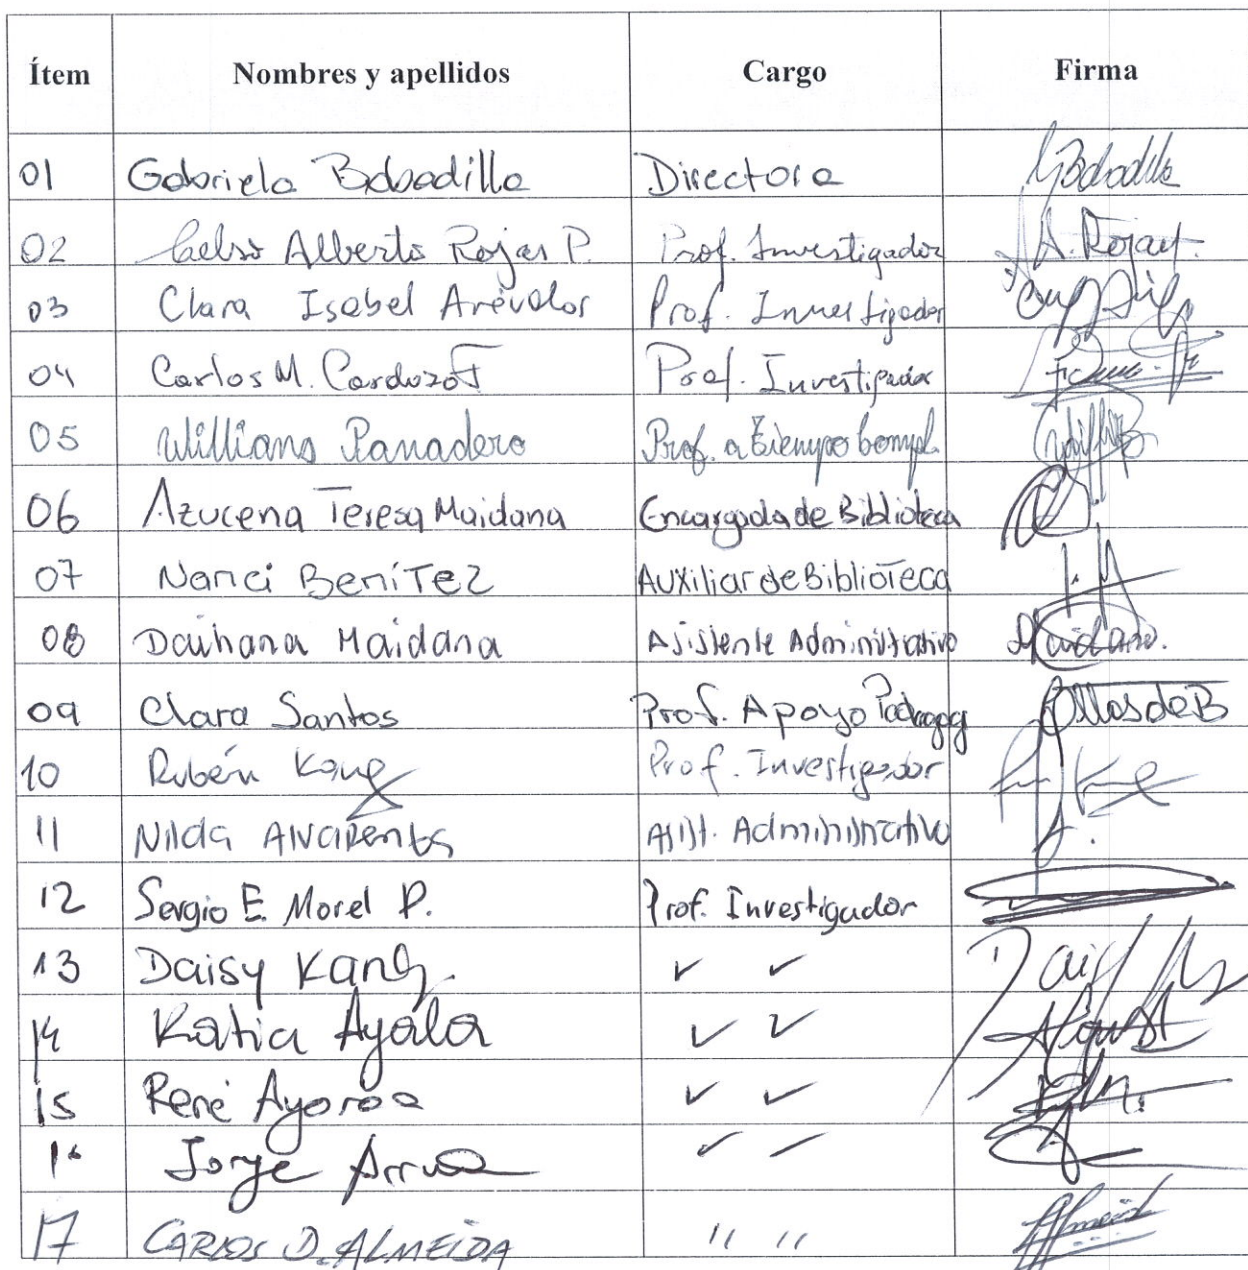 Ítem Nombres y apellidos Cargo Firma
01 Gabriela Bobadilla Directora GBobadilla
02 Celso Alberto Rojas P. Prof. Investigador A. Rojas P.
03 Clara Isabel Arévalos Prof. Investigador
04 Carlos M. Cardozo F Prof. Investigador
05 Willians Panadero Prof. a tiempo compl.
06 Azucena Teresa Maidana Encargada de Biblioteca
07 Nanci BeníTez AUxiliar de BiblioTeca
08 Daihana Maidana Asistente Administrativo Maidana.
09 Clara Santos Prof. Apoyo Pedagog
10 Rubén Kang Prof. Investigador
11 Nilda Alvarenga Asist. Administrativo
12 Sergio E. Morel P. Prof. Investigador
13 Daisy Kang ✓ ✓
14 Katia Ayala ✓ ✓
15 René Ayoroa ✓ ✓
Jorge Arrua
17 CARLOS D. ALMEIDA " " Almeida